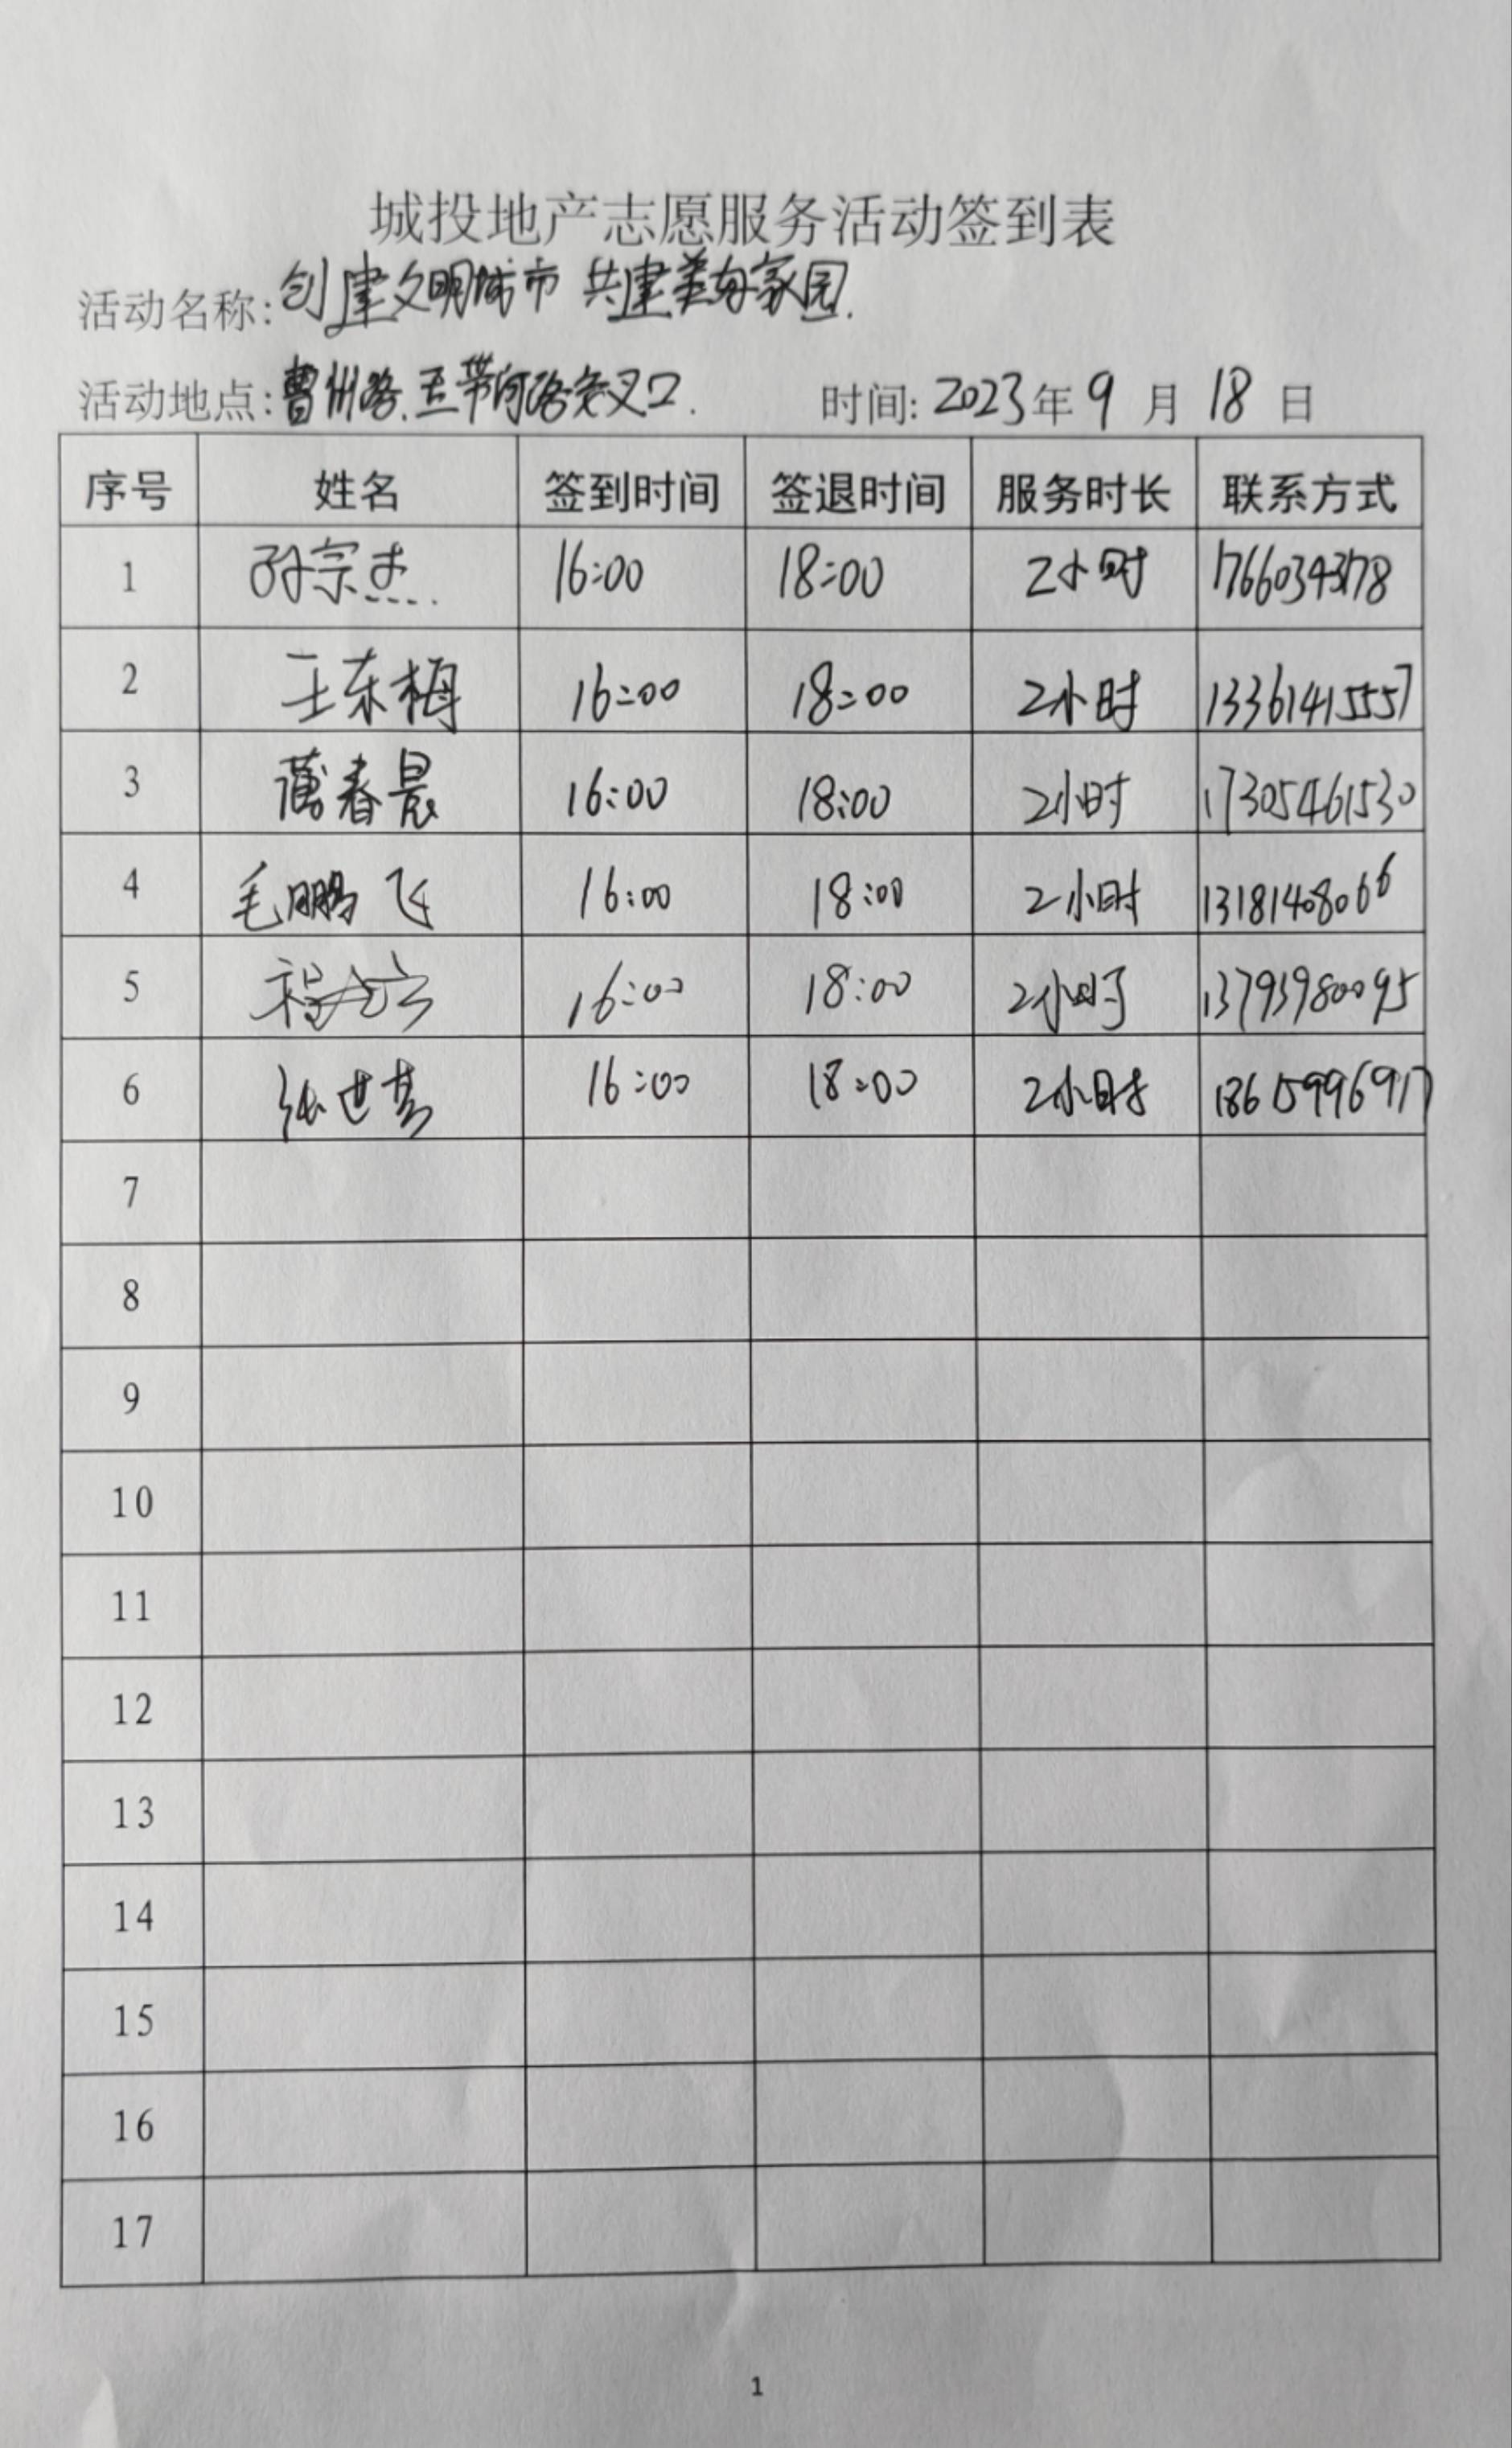 城投地产志愿服务活动签到表
活动名称:创建文明城市 共建美好家园.
活动地点:曹州路.玉带河路交叉口. 时间:2023年9月18日
序号 姓名 签到时间 签退时间 服务时长 联系方式
1 孙宗杰 16:00 18:00 2小时 17660343178
2 王东梅 16:00 18:00 2小时 13361415557
3 春晨 16:00 18:00 2小时 17305461530
4 毛鹏飞 16:00 18:00 2小时 13181408066
5 16:00 18:00 2小时 13793980095
6 张世芳 16:00 18:00 2小时 18615996917
7
8
9
10
11
12
13
14
15
16
17
1